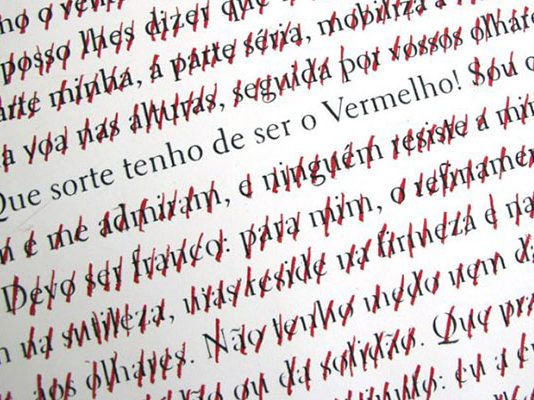 ho o
posso lhes dizer que
arte minha, a parte séria, mobiliza a
a voa nas alturas, seguida por vossos olhare
Que sorte tenho de ser o Vermelho! Sou o
m e me admiram, e ninguém resiste a min
Devo ser franco: para mim, o refinamen
na sutileza, mas reside na firmeza e na
aos olhares. Não tenho medo nem da
ou da solidão. Que pr
: eu a e